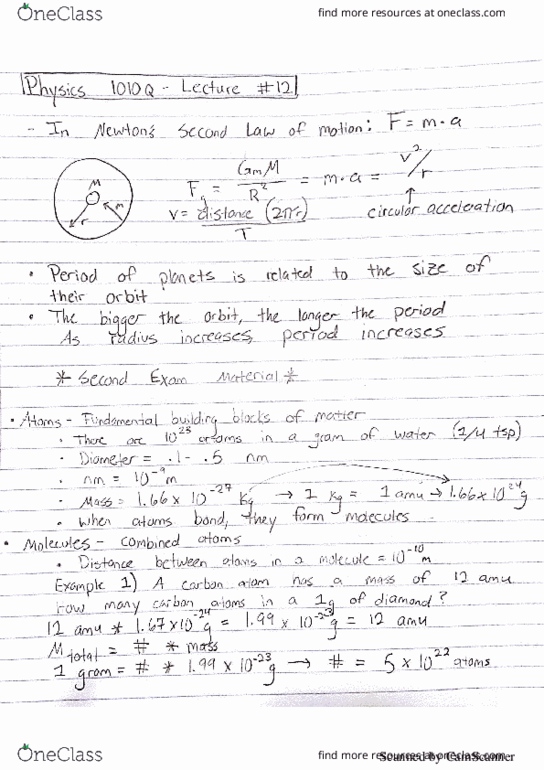 OneClass
find more resources at oneclass.com
Physics 1010Q - Lecture #12
- In Newton's Second Law of motion: F = m·a
M
r
m
Fg = GmM/R² = m·a = v²/r
circular acceleration
v = distance (2πr)/T
• Period of planets is related to the size of
their orbit
• The bigger the orbit, the longer the period
As radius increases, period increases
* Second Exam Material *
• Atoms - Fundamental building blocks of matter
• There are 10²³ atoms in a gram of water (1/4 tsp)
• Diameter = .1 - .5 nm
• nm = 10⁻⁹ m
• Mass = 1.66 x 10⁻²⁷ kg → 1 kg = 1 amu → 1.66 x 10²⁴ g
• When atoms bond, they form molecules
• Molecules - combined atoms
• Distance between atoms in a molecule = 10⁻¹⁰ m
Example 1) A carbon atom has a mass of 12 amu
how many carbon atoms in a 1g of diamond?
12 amu * 1.67x10⁻²⁴ g = 1.99 x 10⁻²³ g = 12 amu
M total = # * mass
1 gram = # * 1.99 x 10⁻²³ g → # = 5 x 10²² atoms
OneClass
find more resources at oneclass.com
Scanned by CamScanner